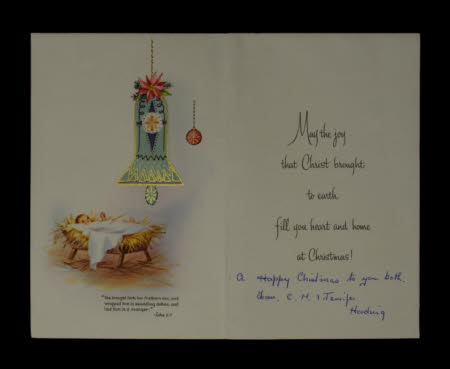 "She brought forth her firstborn son, and
wrapped him in swaddling clothes, and
laid him in a manger."
-Luke 2:7
May the joy
that Christ brought
to earth
fill you heart and home
at Christmas!
A Happy Christmas to you both.
from, C. H. &
Harding